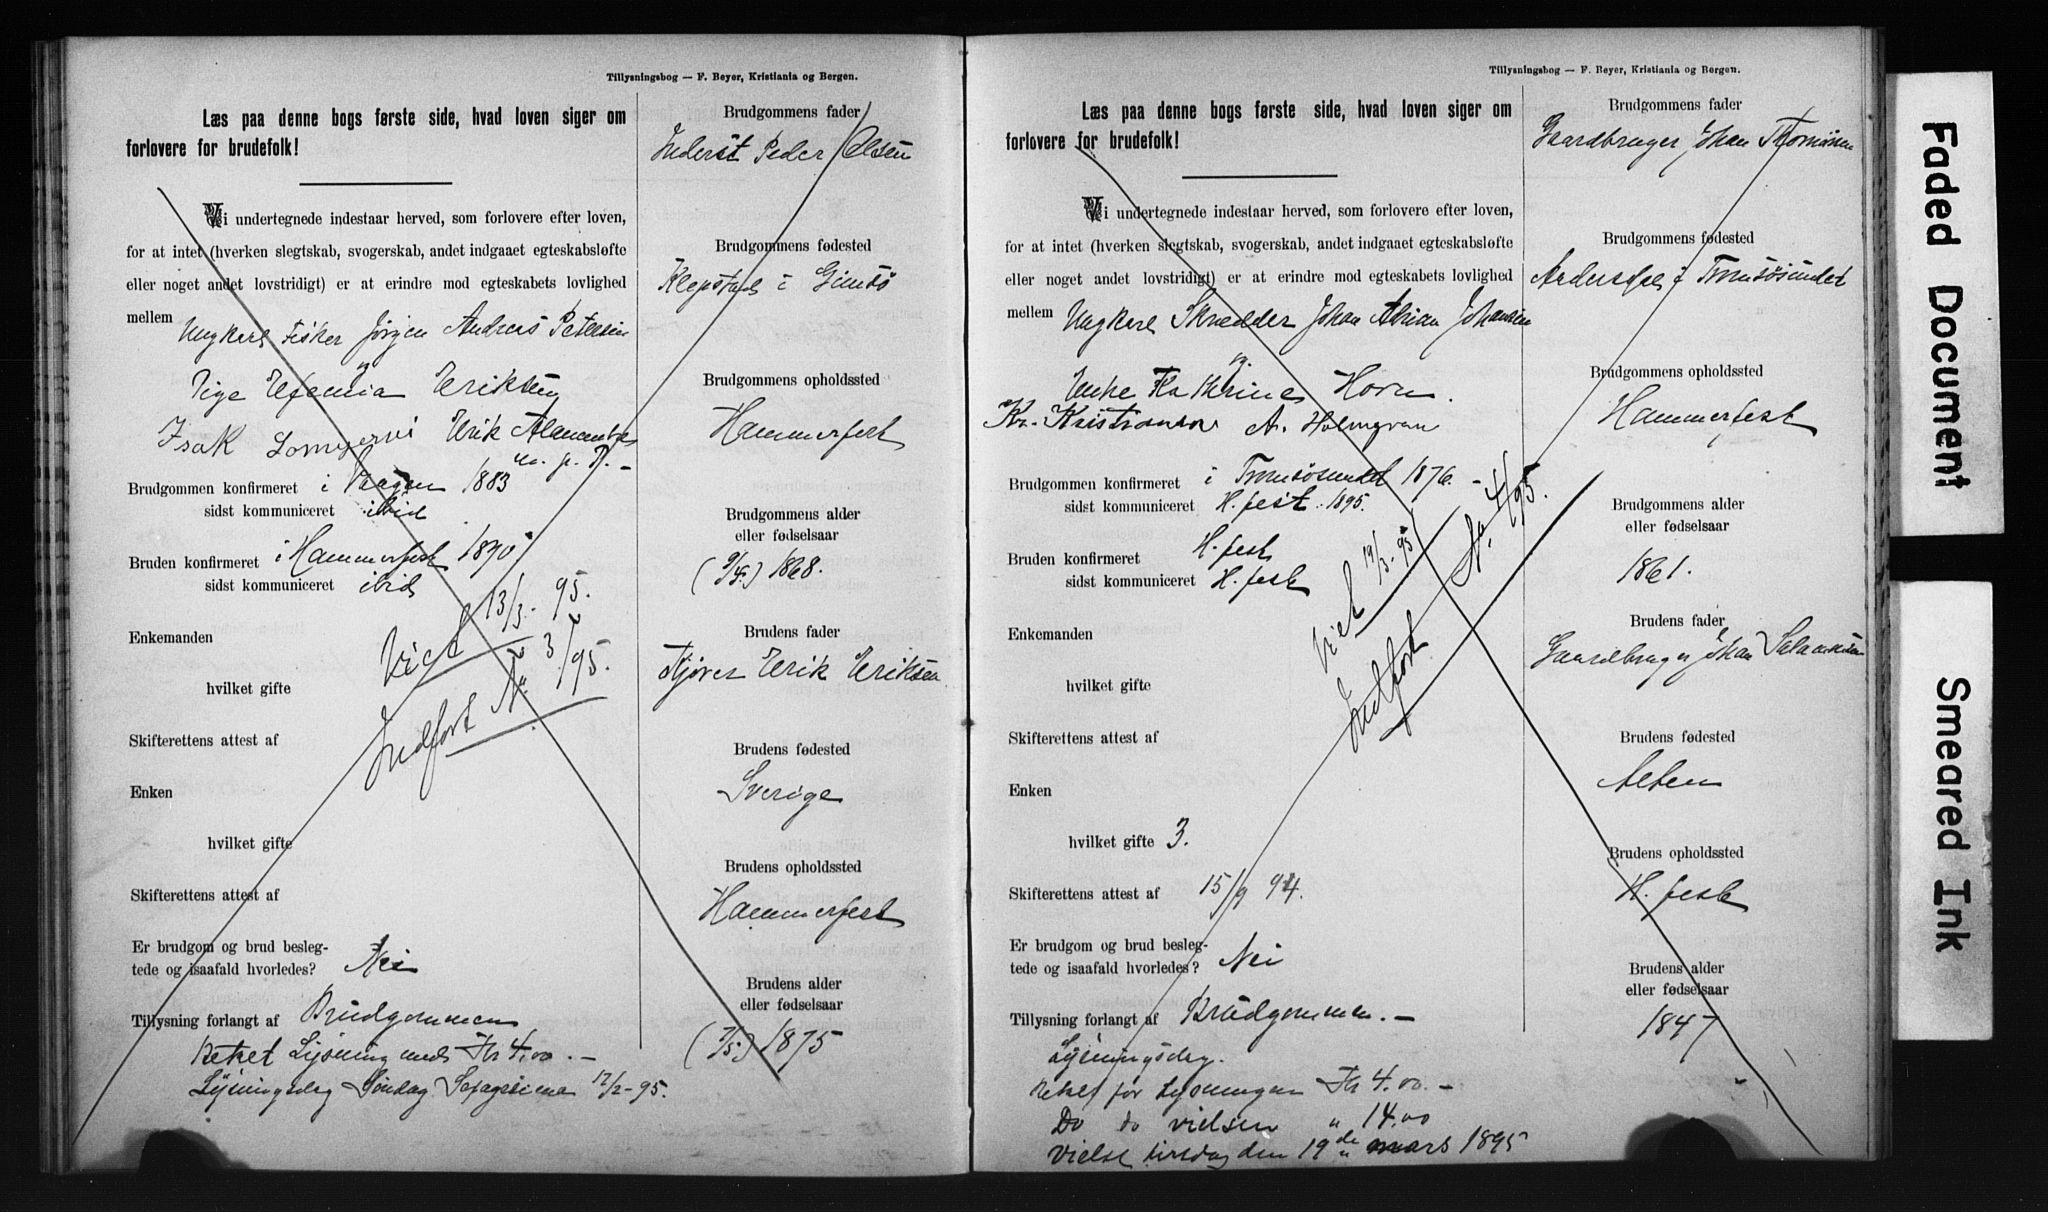 Tillysningsbog — F. Beyer, Kristiania og Bergen.
Læs paa denne bogs første side, hvad loven siger om
forlovere for brudefolk!
Vi undertegnede indestaar herved, som forlovere efter loven,
for at intet (hverken slegtskab, svogerskab, andet indgaaet egteskabsløfte
eller noget andet lovstridigt) er at erindre mod egteskabets lovlighed
mellem
Ungkarl Fisker Jørgen Andreas Petersen
og
Pige Efemia Eriksen
Isak Lomjervi Erik
m. p. P.
Brudgommen konfirmeret i Vaagen 1883
sidst kommuniceret ibid
Bruden konfirmeret i Hammerfest 1890
sidst kommuniceret ibid
Viet 13/3 - 95.
Enkemanden
Indført No 3/95.
hvilket gifte
Skifterettens attest af
Enken
hvilket gifte
Skifterettens attest af
Er brudgom og brud besleg-
tede og isaafald hvorledes? Nei
Tillysning forlangt af Brudgommen
Betalt Lysning med Kr 4.00. —
Lysningsdag Søndag 17/2 - 95.
Brudgommens fader
Inderst Peder Olsen
Brudgommens fødested
Klepstad i Gimsø
Brudgommens opholdssted
Hammerfest
Brudgommens alder
eller fødselsaar
1868.
Brudens fader
Kjører Erik Eriksen
Brudens fødested
Sverige
Brudens opholdssted
Hammerfest
Brudens alder
eller fødselsaar
(7/5) 1875
Tillysningsbog — F. Beyer, Kristiania og Bergen.
Læs paa denne bogs første side, hvad loven siger om
forlovere for brudefolk!
Vi undertegnede indestaar herved, som forlovere efter loven,
for at intet (hverken slegtskab, svogerskab, andet indgaaet egteskabsløfte
eller noget andet lovstridigt) er at erindre mod egteskabets lovlighed
mellem
Ungkarl Skrædder Johan Adrian Johansen
og
Enke Kathrine Horn.
Kr. Kristiansen A. Holmgren
Brudgommen konfirmeret i Tromsøsundet 1876. —
sidst kommuniceret H.fest 1895.
Bruden konfirmeret H.fest
sidst kommuniceret H.fest
Viet 19/3 - 95
Enkemanden
Indført No 4/95.
hvilket gifte
Skifterettens attest af
Enken
hvilket gifte 3.
Skifterettens attest af 15/9 94.
Er brudgom og brud besleg-
tede og isaafald hvorledes? Nei
Tillysning forlangt af Brudgommen. —
Lysningsdag.
Betalt for Lysningen Kr 4.00. —
Do do vielsen " 14.00
Vielse tirsdag den 19de mars 1895
Brudgommens fader
Gaardbruger Johan Thomassen
Brudgommens fødested
Andersdal i Tromsøsundet
Brudgommens opholdssted
Hammerfest
Brudgommens alder
eller fødselsaar
1861.
Brudens fader
Gaardbruger Johan
Brudens fødested
Alten
Brudens opholdssted
H.fest
Brudens alder
eller fødselsaar
1847
Faded Document
Smeared Ink